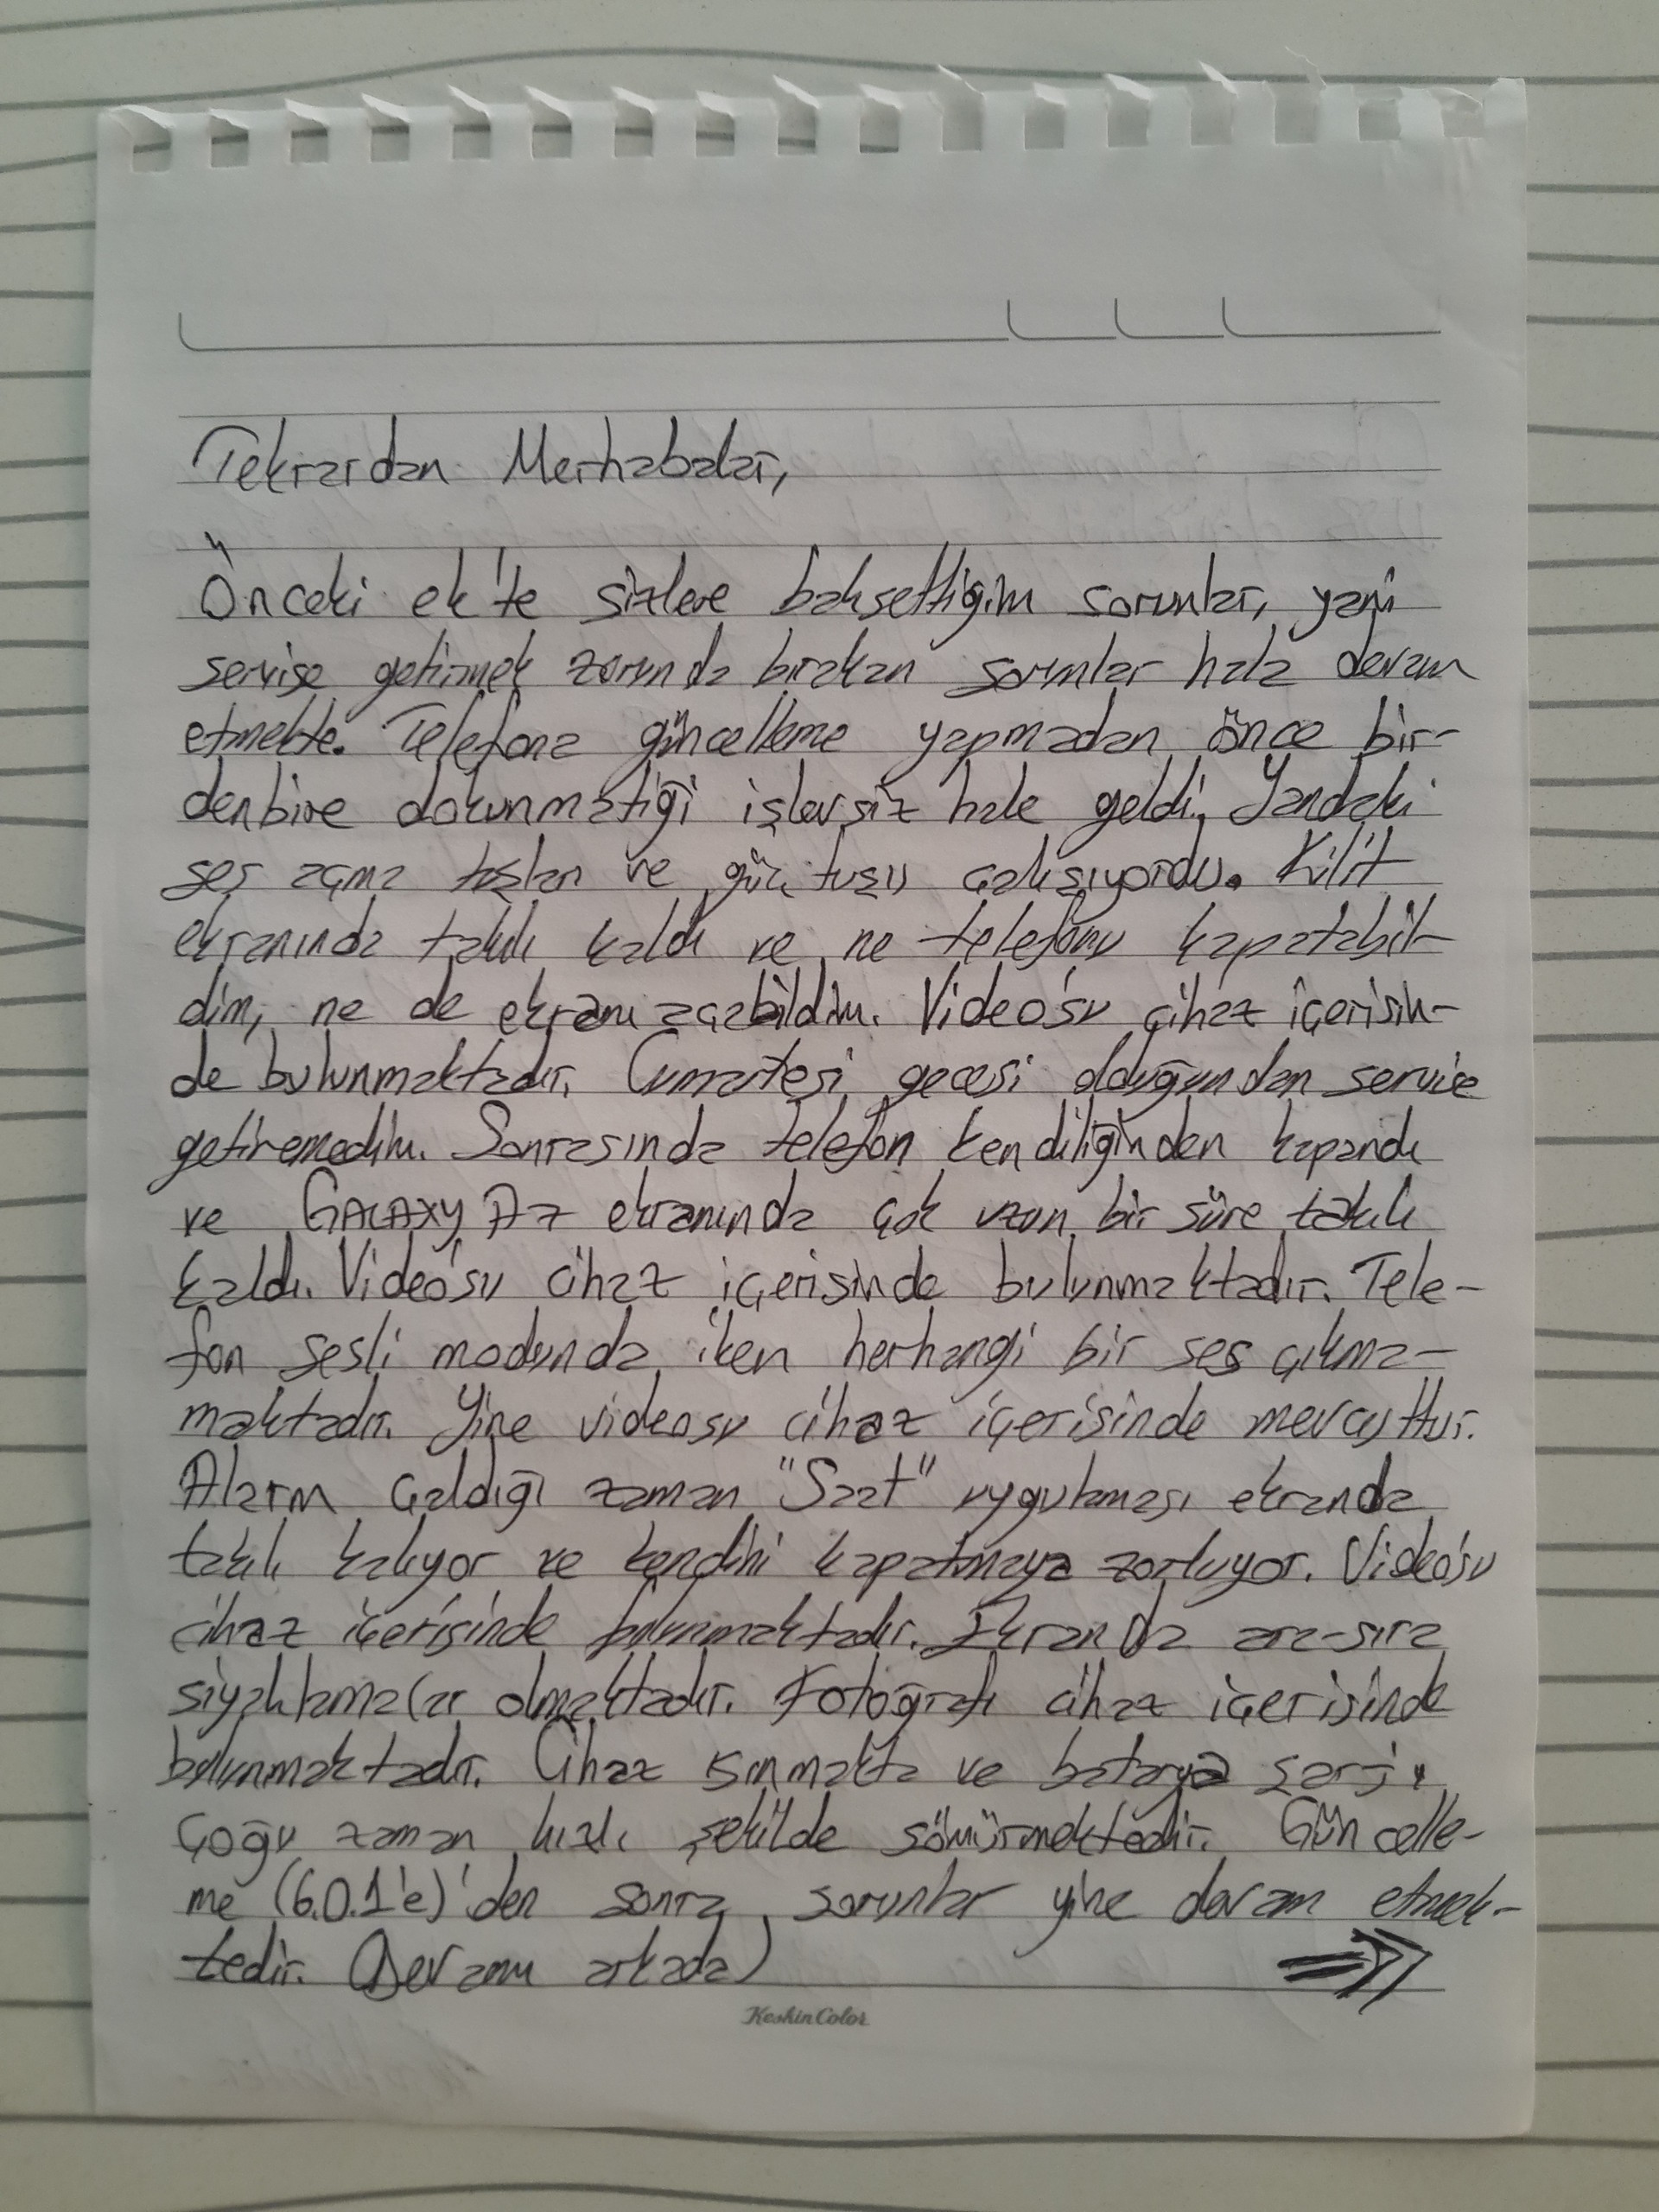 Tekrardan Merhabalar,
Önceki ek'te sizlere bahsettiğim sorunlar, yani
servise getirmek zorunda bırakan sorunlar hala devam
etmekte. Telefona güncelleme yapmadan önce bir-
denbire dokunmatiği işlevsiz hale geldi. Yandaki
ses açma tuşları ve güç tuşu çalışıyordu. Kilit
ekranında takılı kaldı ve ne telefonu kapatabil-
dim, ne de ekranı açabildim. Video'su cihaz içerisin-
de bulunmaktadır. Cumartesi gecesi olduğundan servise
getiremedim. Sonrasında telefon kendiliğinden kapandı
ve GALAXY A7 ekranında çok uzun bir süre takılı
kaldı. Video'su cihaz içerisinde bulunmaktadır. Tele-
fon sesli modunda iken herhangi bir ses çıkma-
maktadır. Yine videosu cihaz içerisinde mevcuttur.
Alarm çaldığı zaman "Saat" uygulaması ekranda
takılı kalıyor ve kendini kapatmaya zorluyor. Video'su
cihaz içerisinde bulunmaktadır. Ekranda ara-sıra
siyahlamalar olmaktadır. Fotoğrafı cihaz içerisinde
bulunmaktadır. Cihaz ısınmakta ve batarya şarjı
çoğu zaman hızlı şekilde sömürmektedir. Güncelle-
me (6.0.1'e)'den sonra sorunlar yine devam etmek-
tedir. (Devamı arkada) ⇒
Keskin Color